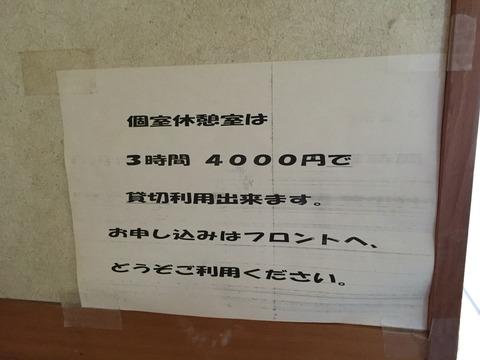 個室休憩室は
3時間 4000円で
貸切利用出来ます。
お申し込みはフロントへ、
どうぞご利用ください。